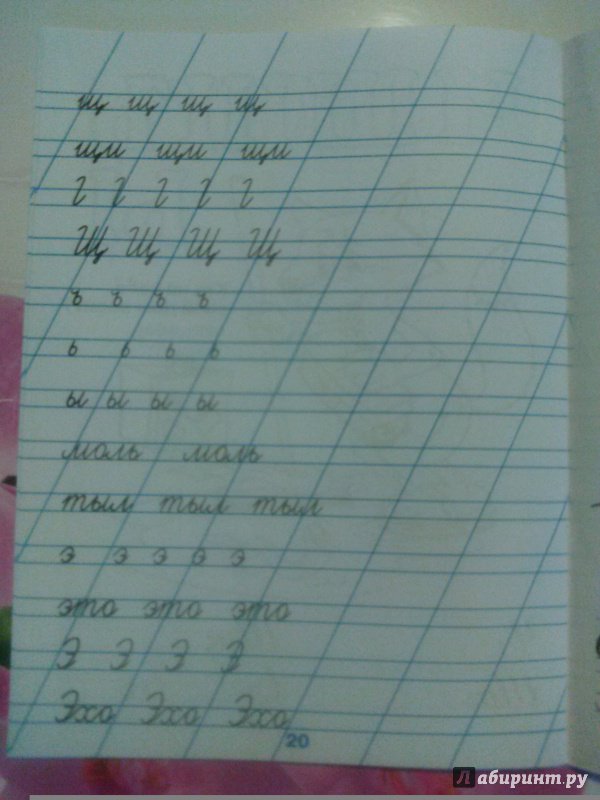 щ щ щ щ
щи щи щи
Г Г Г Г Г
Щ Щ Щ Щ
ъ ъ ъ ъ
ь ь ь ь
ы ы ы ы
моль моль
тыл тыл тыл
э э э э э
это это это
Э Э Э Э
Эхо Эхо Эхо
20
Лабиринт.ру